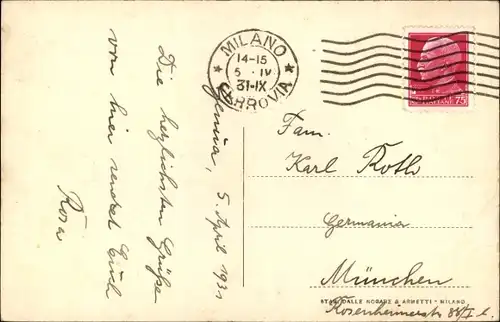 MILANO
14-15
5 · IV
31-IX
FERROVIA
POSTE ITALIANE 75
Genua, 5. April 1931
Die herzlichsten Grüße
von hier sendet Euch
Rosa
Fam.
Karl Roth
Germania
München
Rosenheimerstr 88/I l.
STAB. DALLE NOGARE & ARMETTI - MILANO